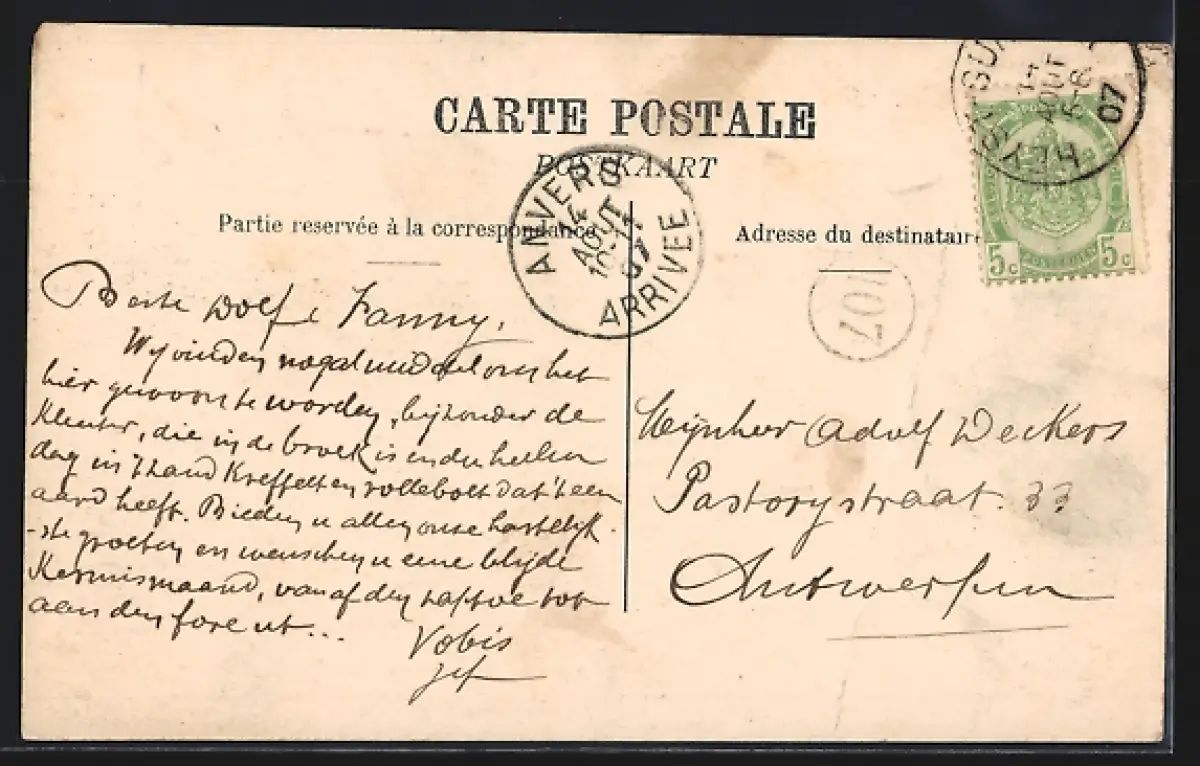 CARTE POSTALE
POSTKAART
Partie reservée à la correspondance
Adresse du destinatair
ANVERS
14
AOUT
07
ARRIVÉE
HEYST-SUR
AOUT
07
5c 5c
107
Beste Dolf & Fanny,
Wij vinden nogal middel om het
hier gewoon te worden, bijzonder de
Kleuter, die in de broek is en den heelen
dag in 't zand Kreffelt en rollebolt dat 't een
aard heeft. Bieden u allen onze hartelijk-
-ste groeten en wenschen u eene blijde
Kermismaand, van af den taptoe tot
aan den fore ut...
Vobis
Jef
Mijnheer Adolf Deckers
Pastorystraat. 33
Antwerpen